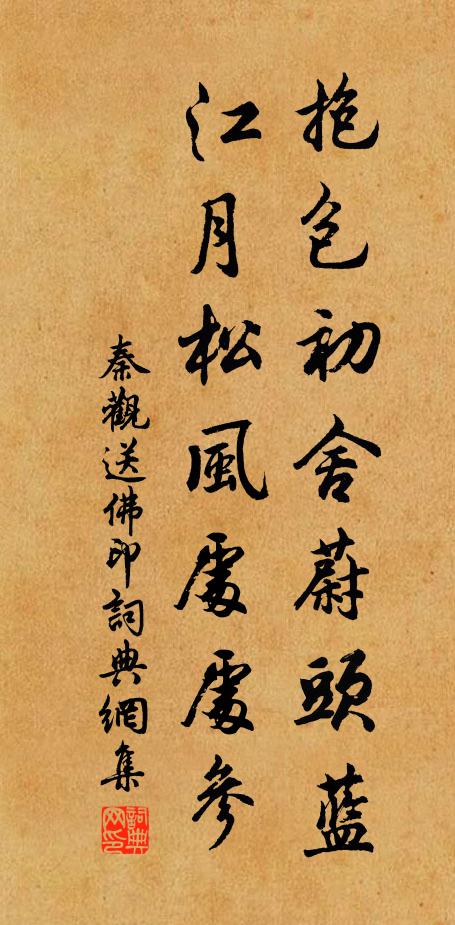 抱包初舍蔚頭藍
江月松風處處參
秦觀送佛印詞典網集
詞典网印